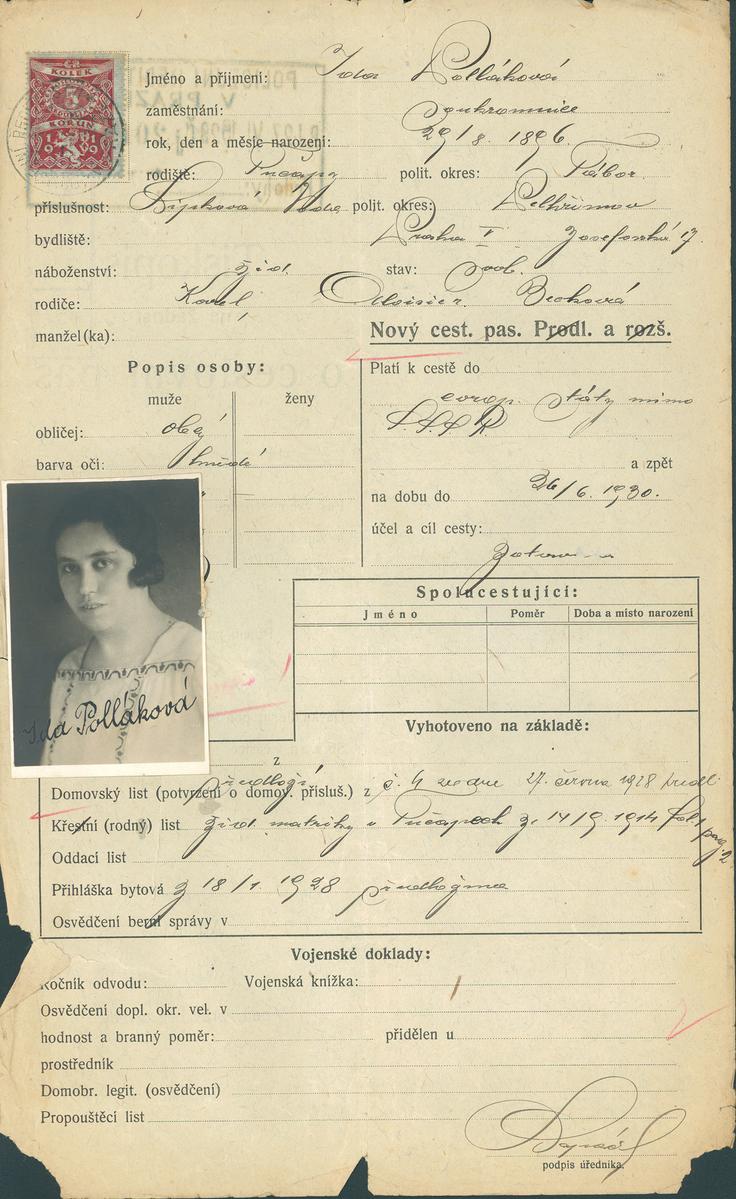 KOLEK
5
KORUN
1919
Jméno a příjmení: Ida Polláková
zaměstnání: soukromnice
rok, den a měsíc narození: 29/8. 1896.
rodiště: Pucapy polit. okres: Tábor
příslušnost: Lípková Voda polit. okres: Pelhřimov
bydliště: Praha V Josefovská 17.
náboženství: žid. stav: svob.
rodiče: Karel, Aloisie r. Becková
manžel(ka):
Nový cest. pas. Prodl. a rozš.
Popis osoby:
muže ženy
obličej:
barva očí: hnědé
Platí k cestě do
evrop. státy mimo
SSSR
a zpět
na dobu do 26/6. 1930.
účel a cíl cesty:
Spolucestující:
Jméno Poměr Doba a místo narození
Ida Polláková
Vyhotoveno na základě:
z
Domovský list (potvrzení o domov. přísluš.) z č. 4 ze dne 27. června 1928
Křestní (rodný) list žid. matriky v Pucapech z 14/9. 1914 fol. 1 pag. 2
Oddací list
Přihláška bytová z 18/1. 1928 předložena
Osvědčení berní správy v
Vojenské doklady:
Ročník odvodu: Vojenská knížka:
Osvědčení dopl. okr. vel. v
hodnost a branný poměr: přidělen u
prostředník
Domobr. legit. (osvědčení)
Propouštěcí list
podpis úředníka.